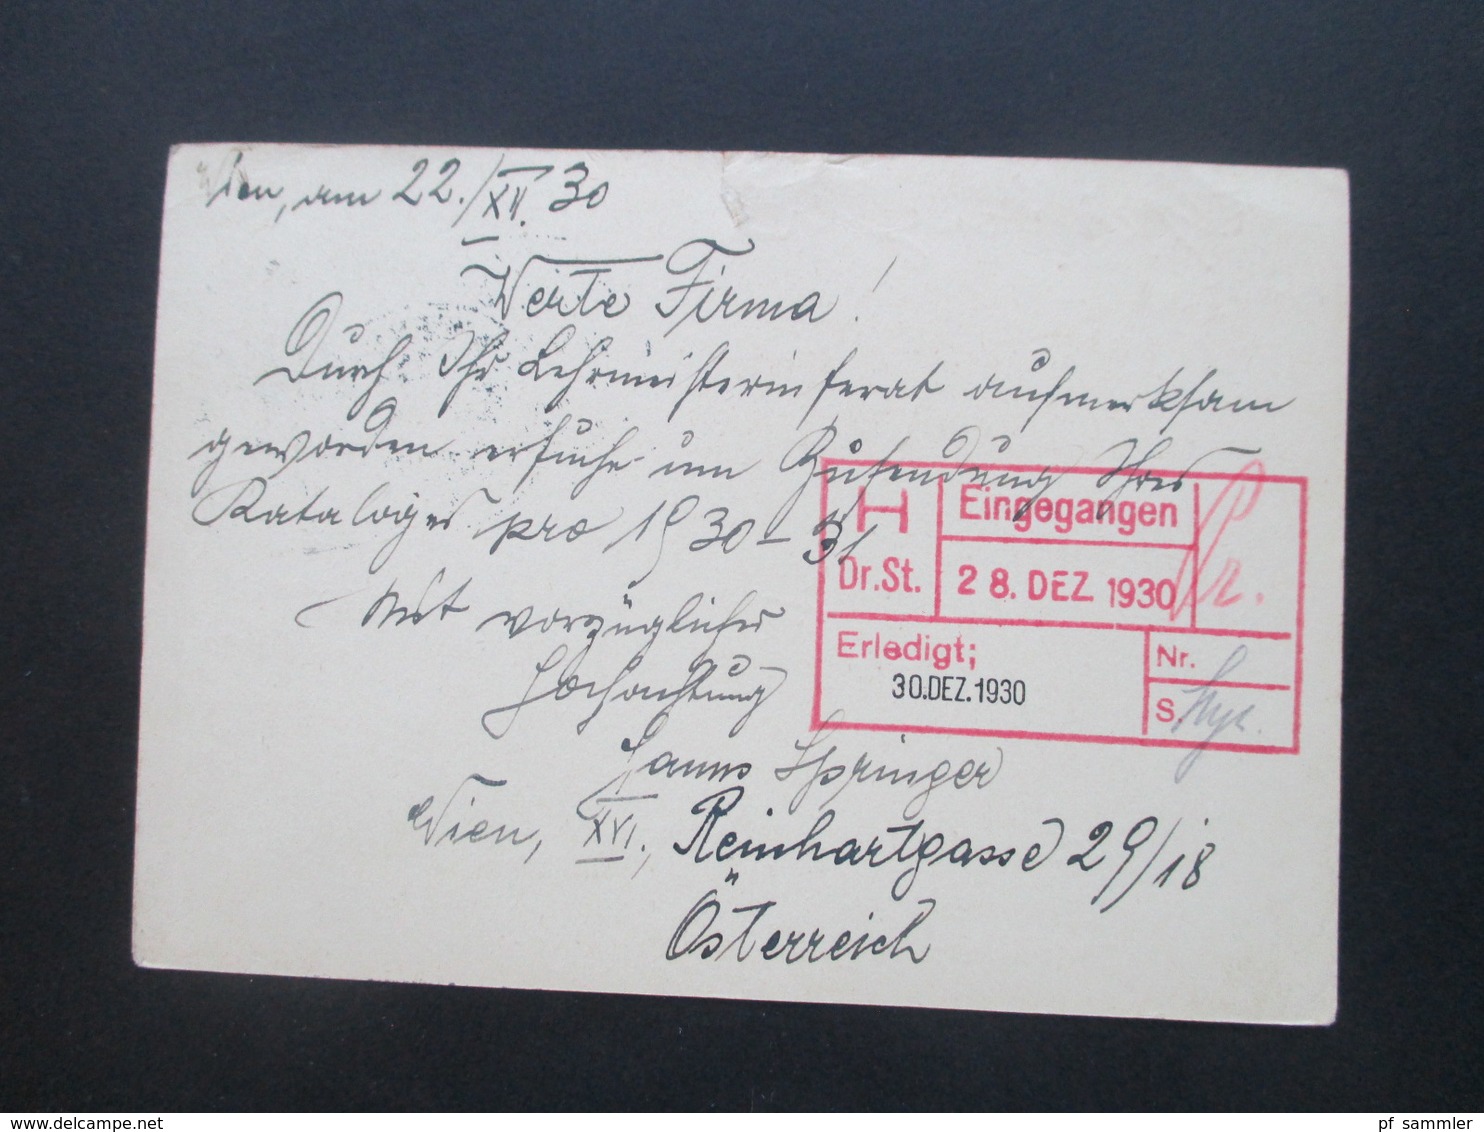 Wien, am 22./XII. 30
Werte Firma!
Durch Ihr Lehrmeisterinserat aufmerksam
geworden ersuche um Zusendung Ihres
Kataloges pro 1930-31
Mit vorzüglicher
Hochachtung
Hanns Springer
Wien, XVI., Reinhartgasse 29/18
Österreich
H
Dr.St.
Eingegangen
28. DEZ 1930
Erledigt;
30.DEZ.1930
Nr.
S.
pf sammler